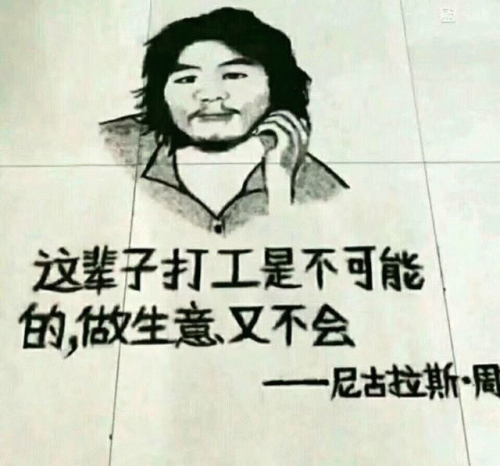 这辈子打工是不可能
的,做生意又不会
——尼古拉斯·周